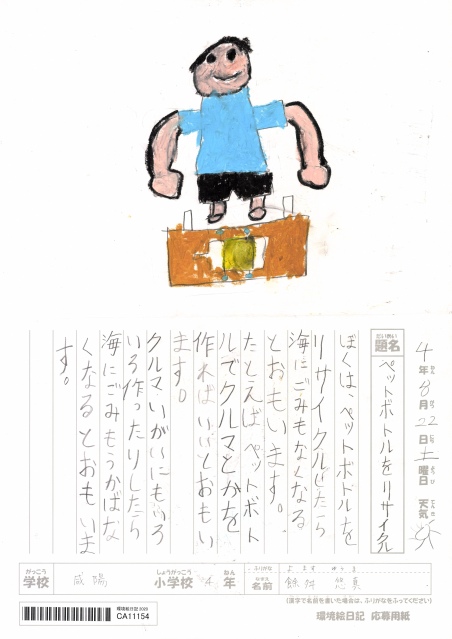 4年8月22日土曜日 天気
だいめい
題名 ペットボトルをリサイクル
ぼくは、ペットボトルを
リサイクルしたら
海にごみもなくなる
とおもいます。
たとえば ペットボト
ルでクルマとかを
作れば いいとおもい
ます。
クルマいがいにもいろ
いろ作ったりしたら
海にごみもうかばな
くなるとおもいま
す。
がっこう しょうがっこう ねん ふりがな
学校 咸陽 小学校 4 年 名前
(漢字で名前を書いた場合は、ふりがなをふってください)
環境絵日記2020
CA11154
環境絵日記 応募用紙